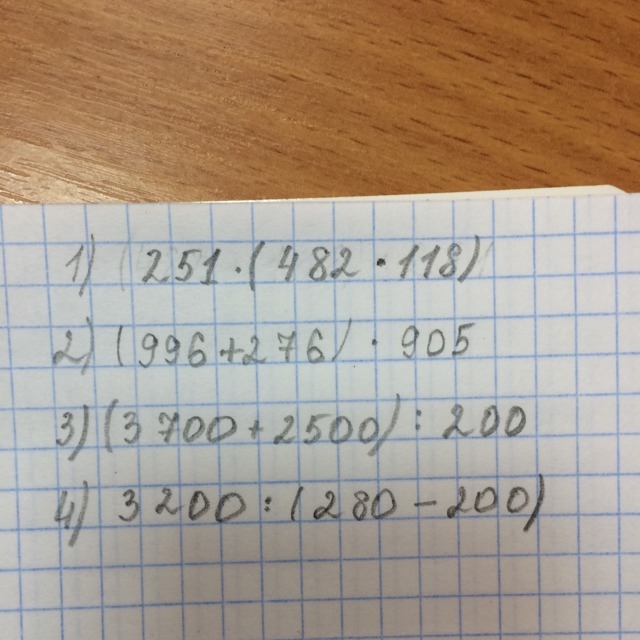 1) 251·(482·118)
2) (996+276)·905
3) (3700+2500):200
4) 3200:(280-200)